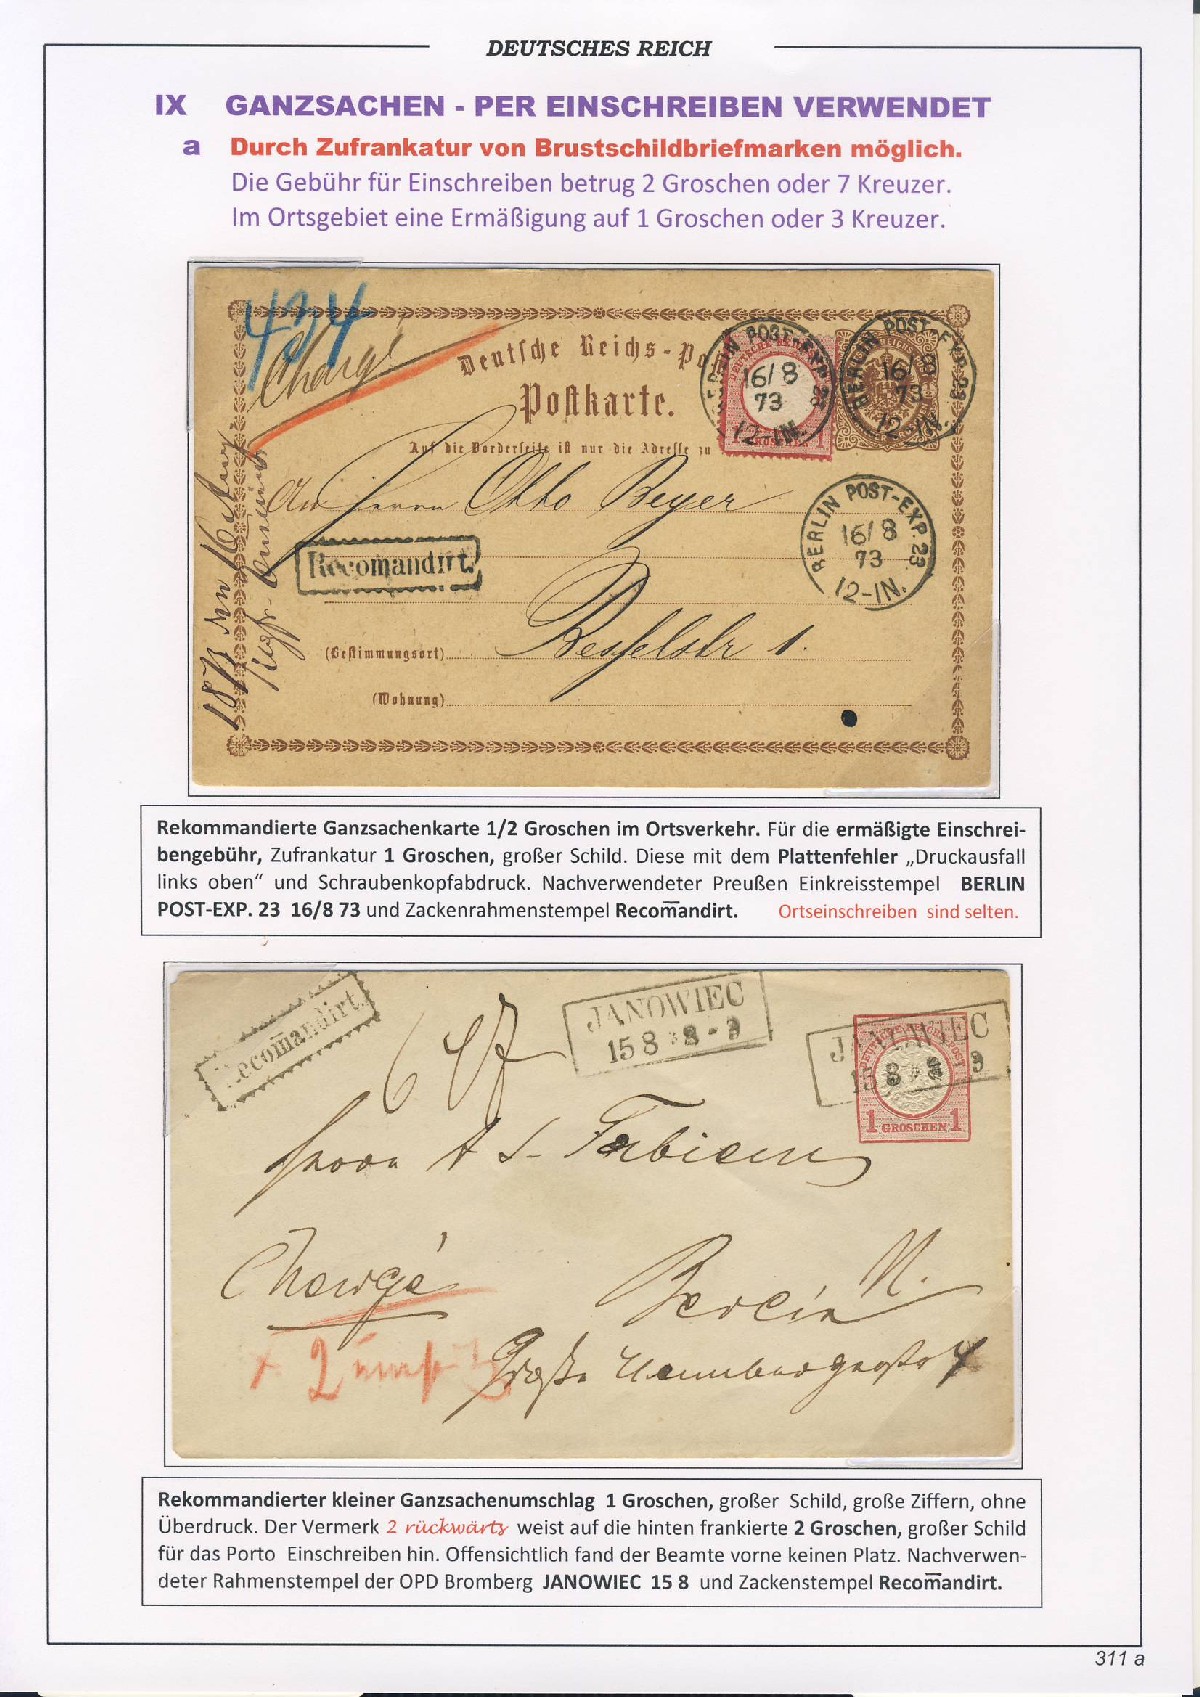 DEUTSCHES REICH
IX GANZSACHEN - PER EINSCHREIBEN VERWENDET
a Durch Zufrankatur von Brustschildbriefmarken möglich.
Die Gebühr für Einschreiben betrug 2 Groschen oder 7 Kreuzer.
Im Ortsgebiet eine Ermäßigung auf 1 Groschen oder 3 Kreuzer.
434
Chargé
Deutsche Reichs-Po
Postkarte.
Auf die Vorderseite ist nur die Adresse zu
BERLIN POST-EXP. 23
16/8
73
12-1N.
1 GROSCHEN 1
BERLIN POST-EXP. 23
16/8
73
12-1N.
An Herrn Otto Beyer
BERLIN POST-EXP. 23
16/8
73
12-1N.
Recomandirt.
Besselstr 1.
(Bestimmungsort)
(Wohnung)
1873
Rekommandierte Ganzsachenkarte 1/2 Groschen im Ortsverkehr. Für die ermäßigte Einschrei-
bengebühr, Zufrankatur 1 Groschen, großer Schild. Diese mit dem Plattenfehler „Druckausfall
links oben“ und Schraubenkopfabdruck. Nachverwendeter Preußen Einkreisstempel BERLIN
POST-EXP. 23 16/8 73 und Zackenrahmenstempel Recom̅andirt. Ortseinschreiben sind selten.
Recom̅andirt.
JANOWIEC
15 8
JANOWIEC
15 8
1 GROSCHEN 1
Herrn A S. Fabian
Chargé
Berlin N.
2
Große Hamburgerstr 4
Rekommandierter kleiner Ganzsachenumschlag 1 Groschen, großer Schild, große Ziffern, ohne
Überdruck. Der Vermerk 2 rückwärts weist auf die hinten frankierte 2 Groschen, großer Schild
für das Porto Einschreiben hin. Offensichtlich fand der Beamte vorne keinen Platz. Nachverwen-
deter Rahmenstempel der OPD Bromberg JANOWIEC 15 8 und Zackenstempel Recom̅andirt.
311 a